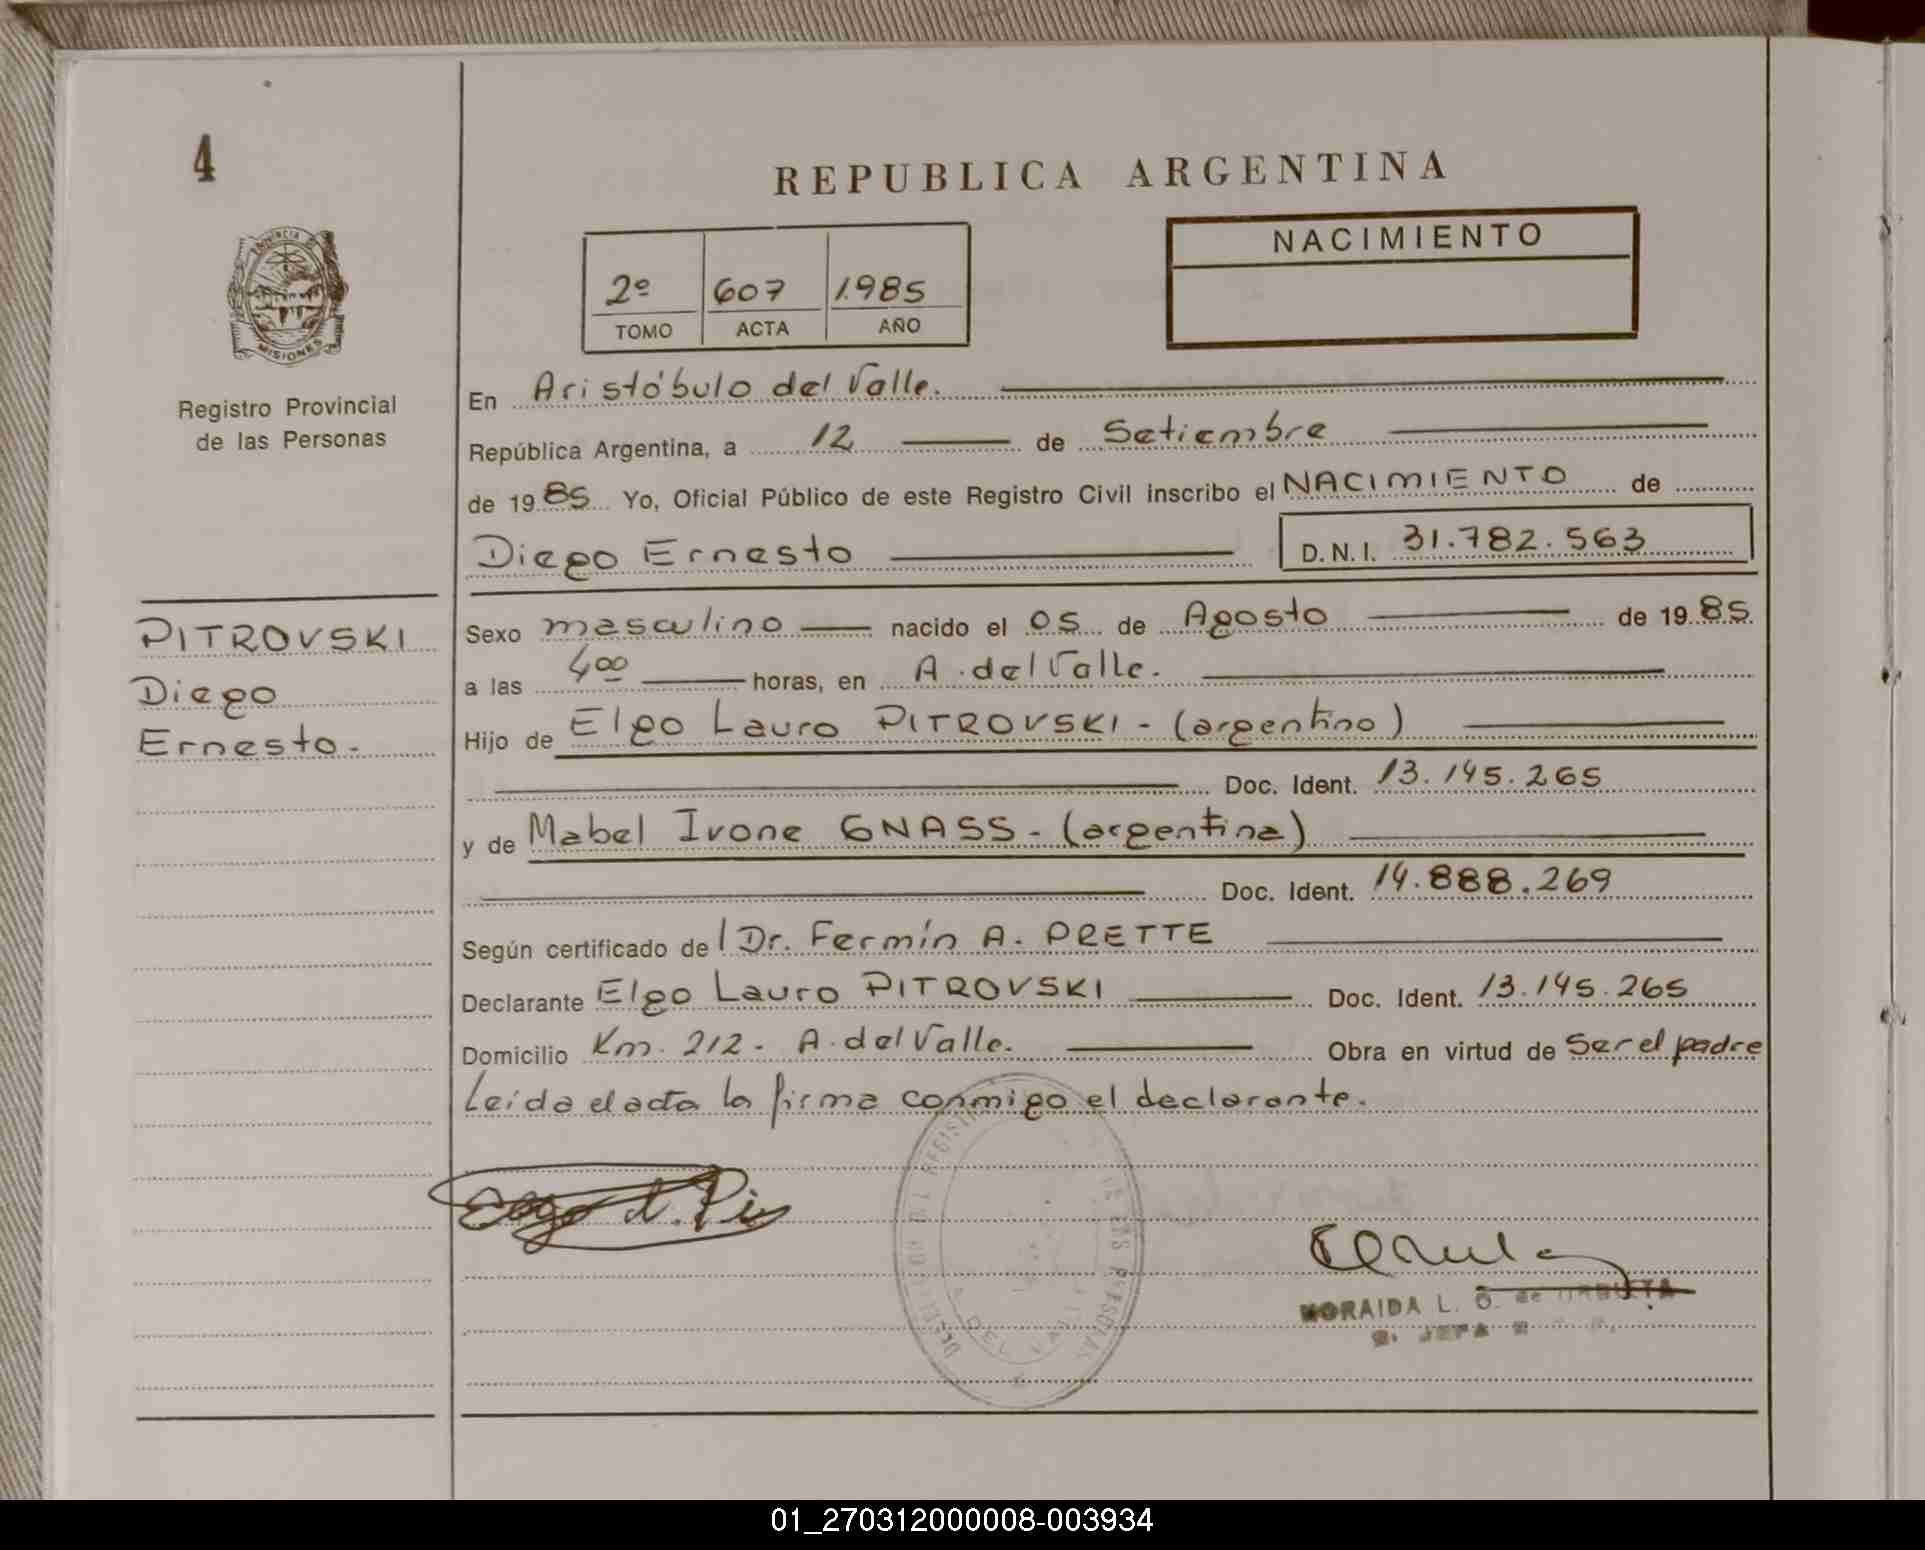 4
REPUBLICA ARGENTINA
NACIMIENTO
2º 607 1.985
TOMO ACTA AÑO
PROVINCIA DE
MISIONES
Registro Provincial
de las Personas
En Aristóbulo del Valle.
República Argentina, a 12 de Setiembre
de 1985 Yo, Oficial Público de este Registro Civil inscribo el NACIMIENTO de
Diego Ernesto D.N.I. 31.782.563
PITROVSKI
Diego
Ernesto.-
Sexo masculino nacido el 05 de Agosto de 1985.
a las 4ºº horas, en A. del Valle.
Hijo de Elgo Lauro PITROVSKI - (argentino)
Doc. Ident. 13.145.265
y de Mabel Ivone GNASS - (argentina)
Doc. Ident. 14.888.269
Según certificado de l Dr. Fermín A. PRETTE
Declarante Elgo Lauro PITROVSKI Doc. Ident. 13.145.265
Domicilio Km. 212 - A. del Valle. Obra en virtud de Ser el padre
Leída el acta la firma conmigo el declarante.
DEL VALLE
DE LAS PERSONAS
MORAIDA L. O. de
JEFA
01_270312000008-003934